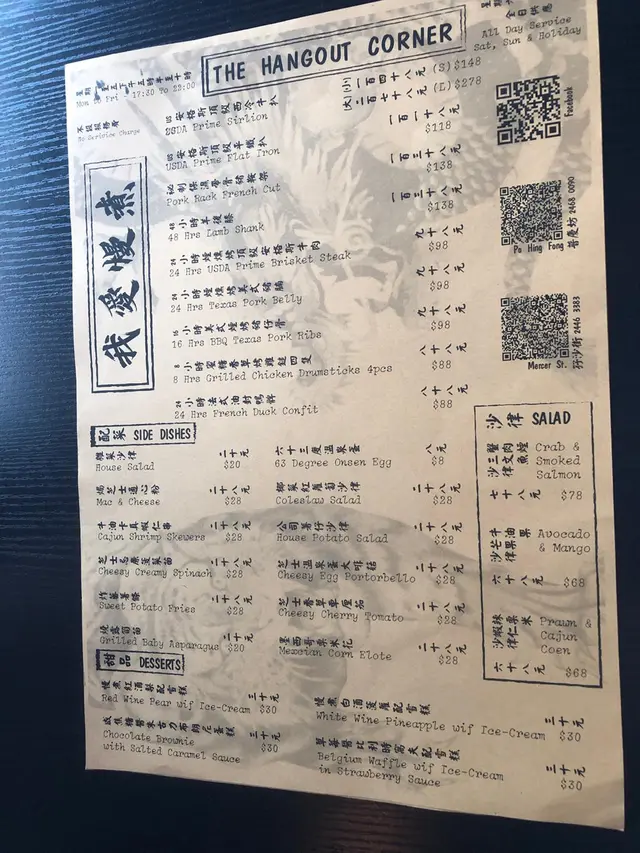 THE HANGOUT CORNER
星期一至五下午五時半至十時
Mon - Fri - 17:30 To 22:00
不設服務費
No Serivice Charge
全日供應
All Day Service
Sat, Sun & Holiday
Facebook
Po Hing Fong 普慶坊 2468 0090
Mercer St. 孖沙街 2446 3383
我愛慢煮
安格斯頂級西冷牛扒 (小)一百四十八元 (S)$148
USDA Prime Sirlion (大)二百七十八元 (L)$278
安格斯頂級平鐵扒 一百一十八元
USDA Prime Flat Iron $118
秘制保濕帶骨豬鞍架 一百三十八元
Pork Rack French Cut $138
48小時羊後膝 一百三十八元
48 Hrs Lamb Shank $138
24小時煙燻烤頂級安格斯牛肉 九十八元
24 Hrs USDA Prime Brisket Steak $98
24小時煙燻烤美式豬腩 九十八元
24 Hrs Texas Pork Belly $98
16小時美式煙烤豬仔骨 九十八元
16 Hrs BBQ Texas Pork Ribs $98
8小時蜜糖香草烤雞鎚四隻 八十八元
8 Hrs Grilled Chicken Drumsticks 4pcs $88
24小時法式油封鴨髀 八十八元
24 Hrs French Duck Confit $88
配菜 SIDE DISHES
雜菜沙律 二十元
House Salad $20
焗芝士通心粉 二十八元
Mac & Cheese $28
牛油卡真蝦仁串 二十八元
Cajun Shrimp Skewers $28
芝士忌廉菠菜苗 二十八元
Cheesy Creamy Spinach $28
炸蕃薯條 二十八元
Sweet Potato Fries $28
燒露筍苗 二十元
Grilled Baby Asparagus $20
六十三度溫泉蛋 八元
63 Degree Onsen Egg $8
椰菜紅蘿蔔沙律 二十八元
Coleslaw Salad $28
公司薯仔沙律 二十八元
House Potato Salad $28
芝士溫泉蛋大啡菇 二十八元
Cheesy Egg Portorbello $28
芝士香草車厘茄 二十八元
Cheesy Cherry Tomato $28
墨西哥粟米花 二十八元
Mexcian Corn Elote $28
沙律 SALAD
蟹肉煙三文魚沙律
Crab & Smoked Salmon
七十八元 $78
牛油果芒果沙律
Avocado & Mango
六十八元 $68
辣粟米蝦仁沙律
Prawn & Cajun Coen
六十八元 $68
甜品 DESSERTS
慢煮紅酒梨配雪糕 三十元
Red Wine Pear wif Ice-Cream $30
咸焦糖醬朱古力布朗尼蛋糕 三十元
Chocolate Brownie $30
with Salted Caramel Sauce
慢煮白酒菠蘿配雪糕 三十元
White Wine Pineapple wif Ice-Cream $30
草莓醬比利時窩夫配雪糕 三十元
Belgium Waffle wif Ice-Cream $30
in Strawberry Sauce